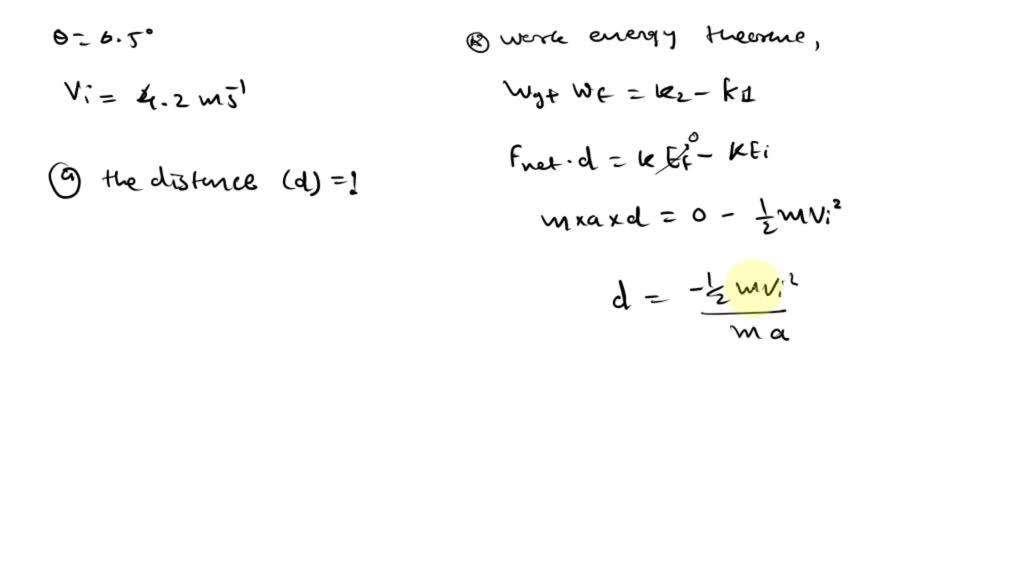 θ = 6.5°
Vi = 4.2 ms⁻¹
ⓐ the distance (d) = ?
Ⓡ work energy theorme,
Wg + Wf = k2 - k1
Fnet · d = KEf⁰ - KEi
m × a × d = 0 - ½ mVi²
d = -½ mVi² / ma